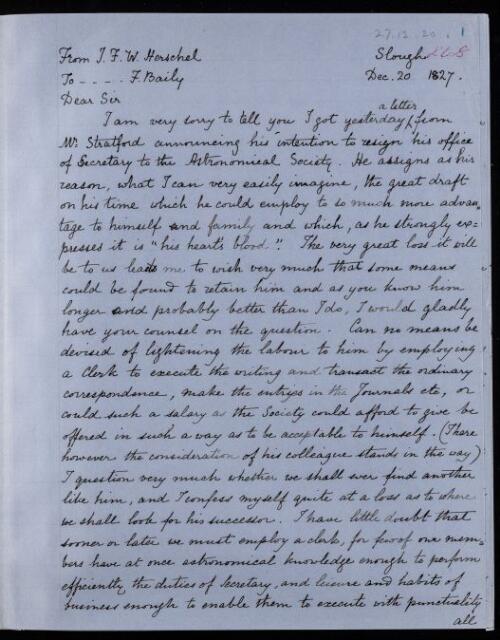 27.12.20. 1
From J. F. W. Herschel Slough
To - - - - F. Baily Dec. 20 1827.
Dear Sir
I am very sorry to tell you I got yesterday a letter from
Mr. Stratford announcing his intention to resign his office
of Secretary to the Astronomical Society. He assigns as his
reason, what I can very easily imagine, the great draft
on his time which he could employ to so much more advan-
tage to himself and family and which, as he strongly ex=
presses it is "his heart's blood." The very great loss it will
be to us leads me to wish very much that some means
could be found to retain him and as you know him
longer and probably better than I do, I would gladly
have your counsel on the question. Can no means be
devised of lightening the labour to him by employing
a Clerk to execute the writing and transact the ordinary
correspondence, make the entries in the Journals etc, or
could such a salary as the Society could afford to give be
offered in such a way as to be acceptable to himself. (There
however the consideration of his colleague stands in the way)
I question very much whether we shall ever find another
like him, and I confess myself quite at a loss as to where
we shall look for his successor. I have little doubt that
sooner or later we must employ a clerk, for few of our mem-
bers have at once astronomical knowledge enough to perform
efficiently the duties of Secretary, and leisure and habits of
business enough to enable them to execute with punctuality
all